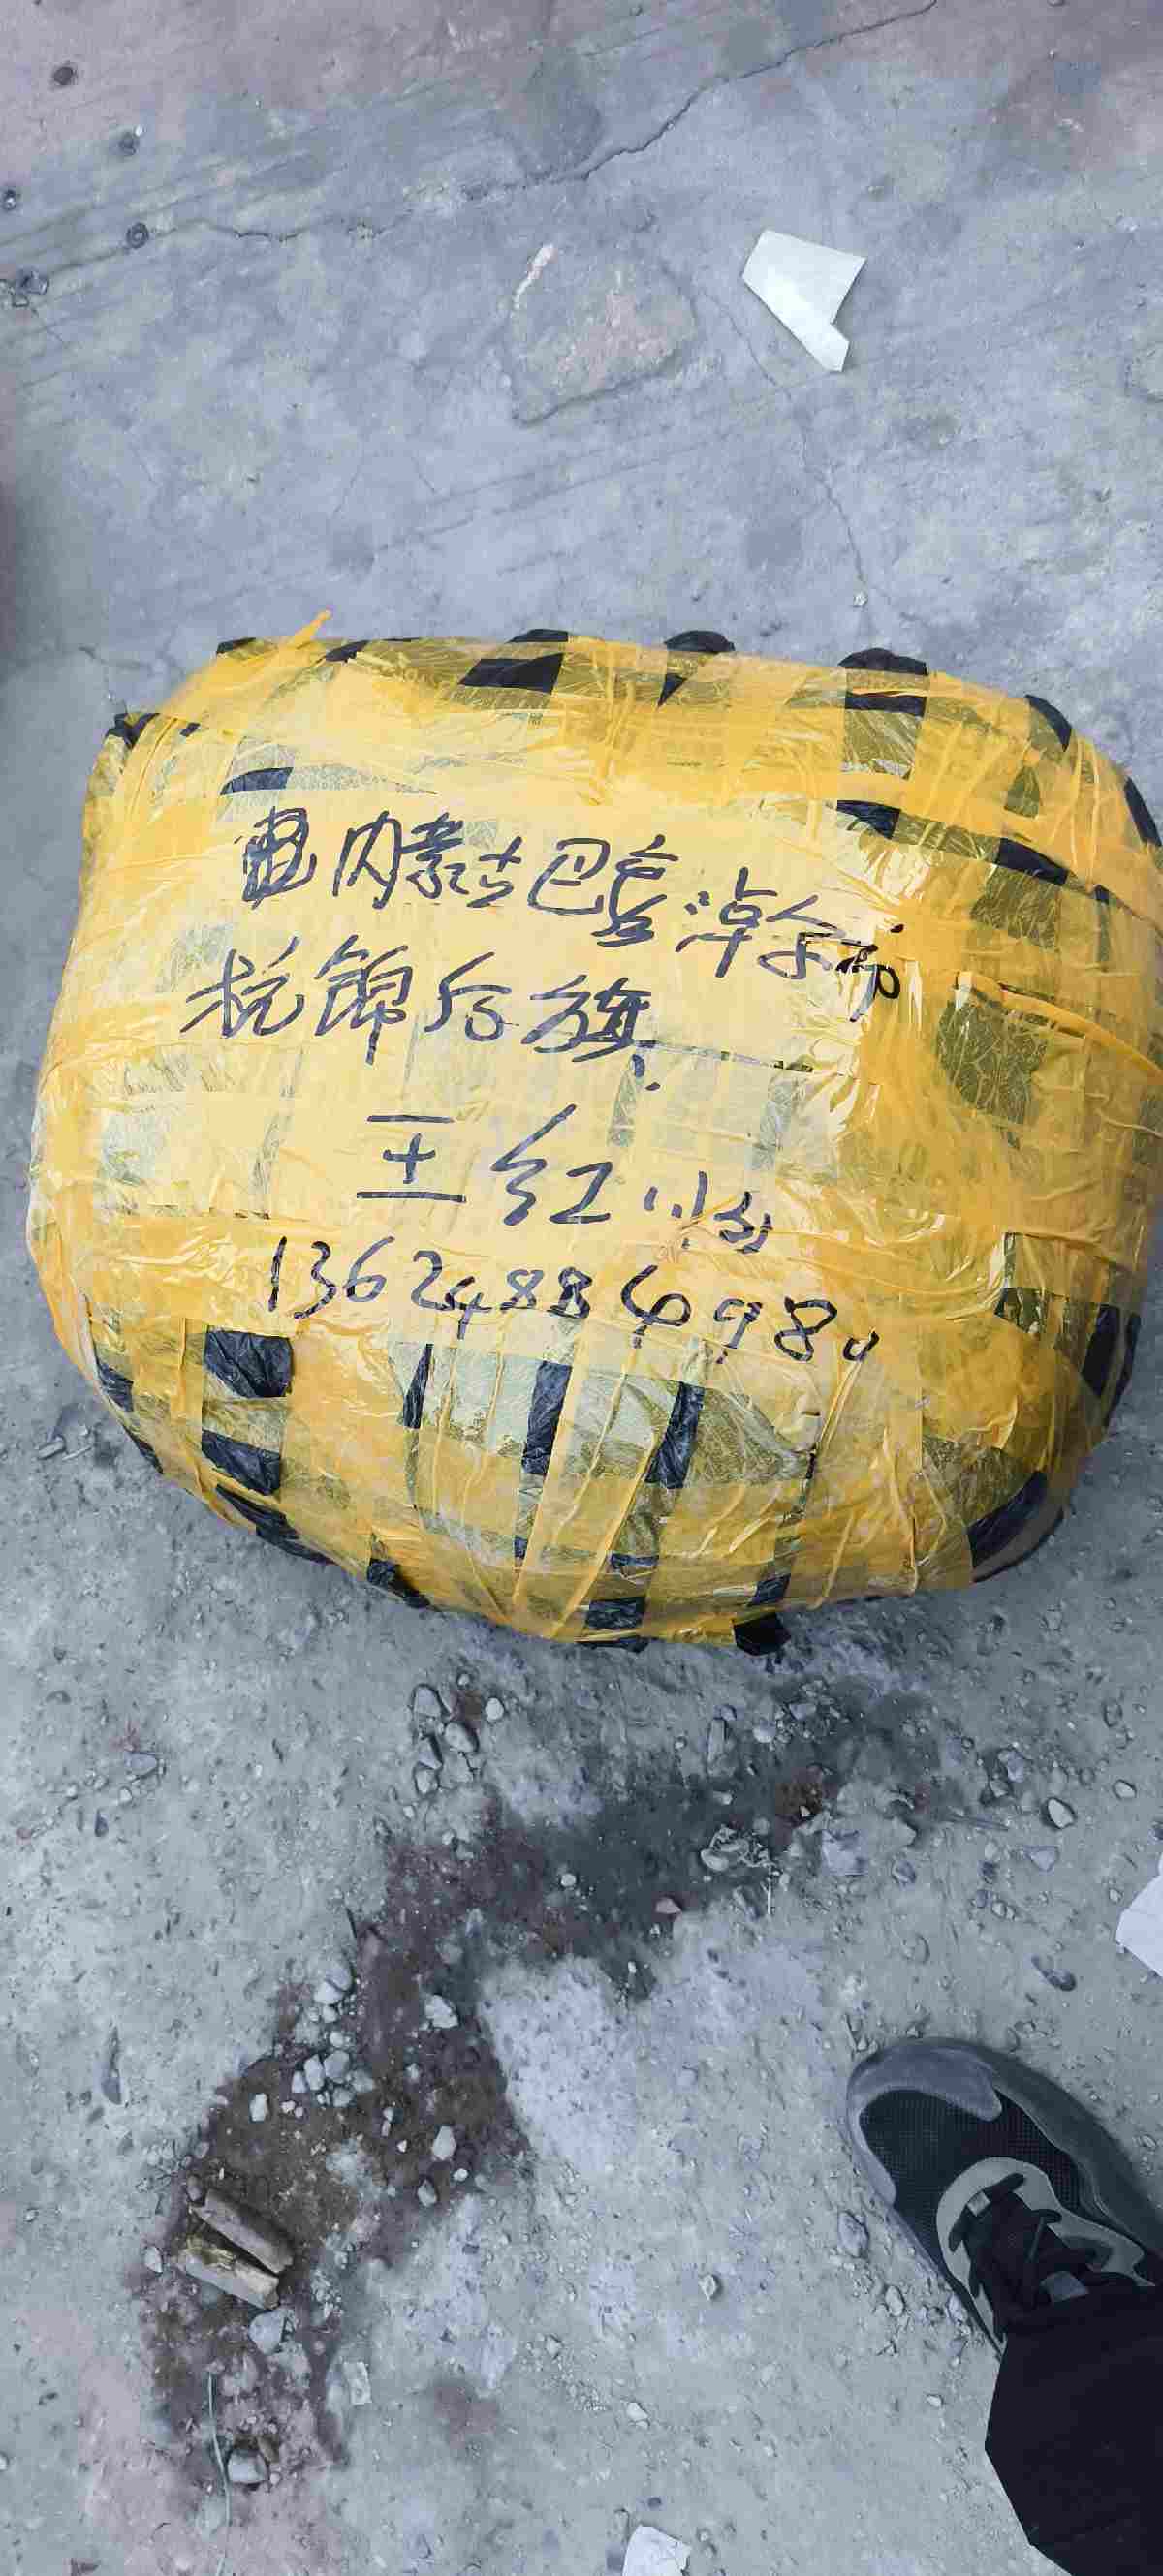 内蒙古巴彦淖尔市
杭锦后旗
王红
13624886980